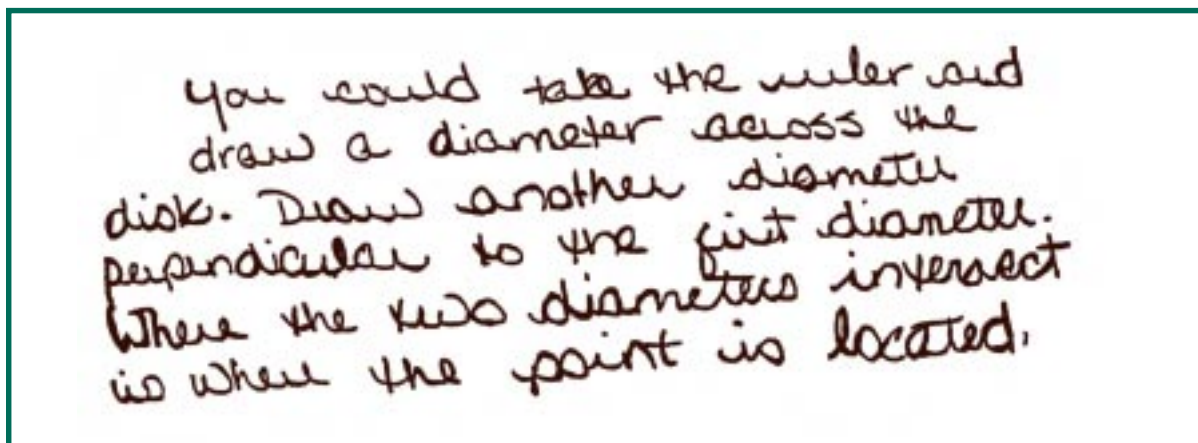 You could take the ruler and
draw a diameter across the
disk. Draw another diameter
perpendicular to the first diameter.
Where the two diameters intersect
is where the point is located.